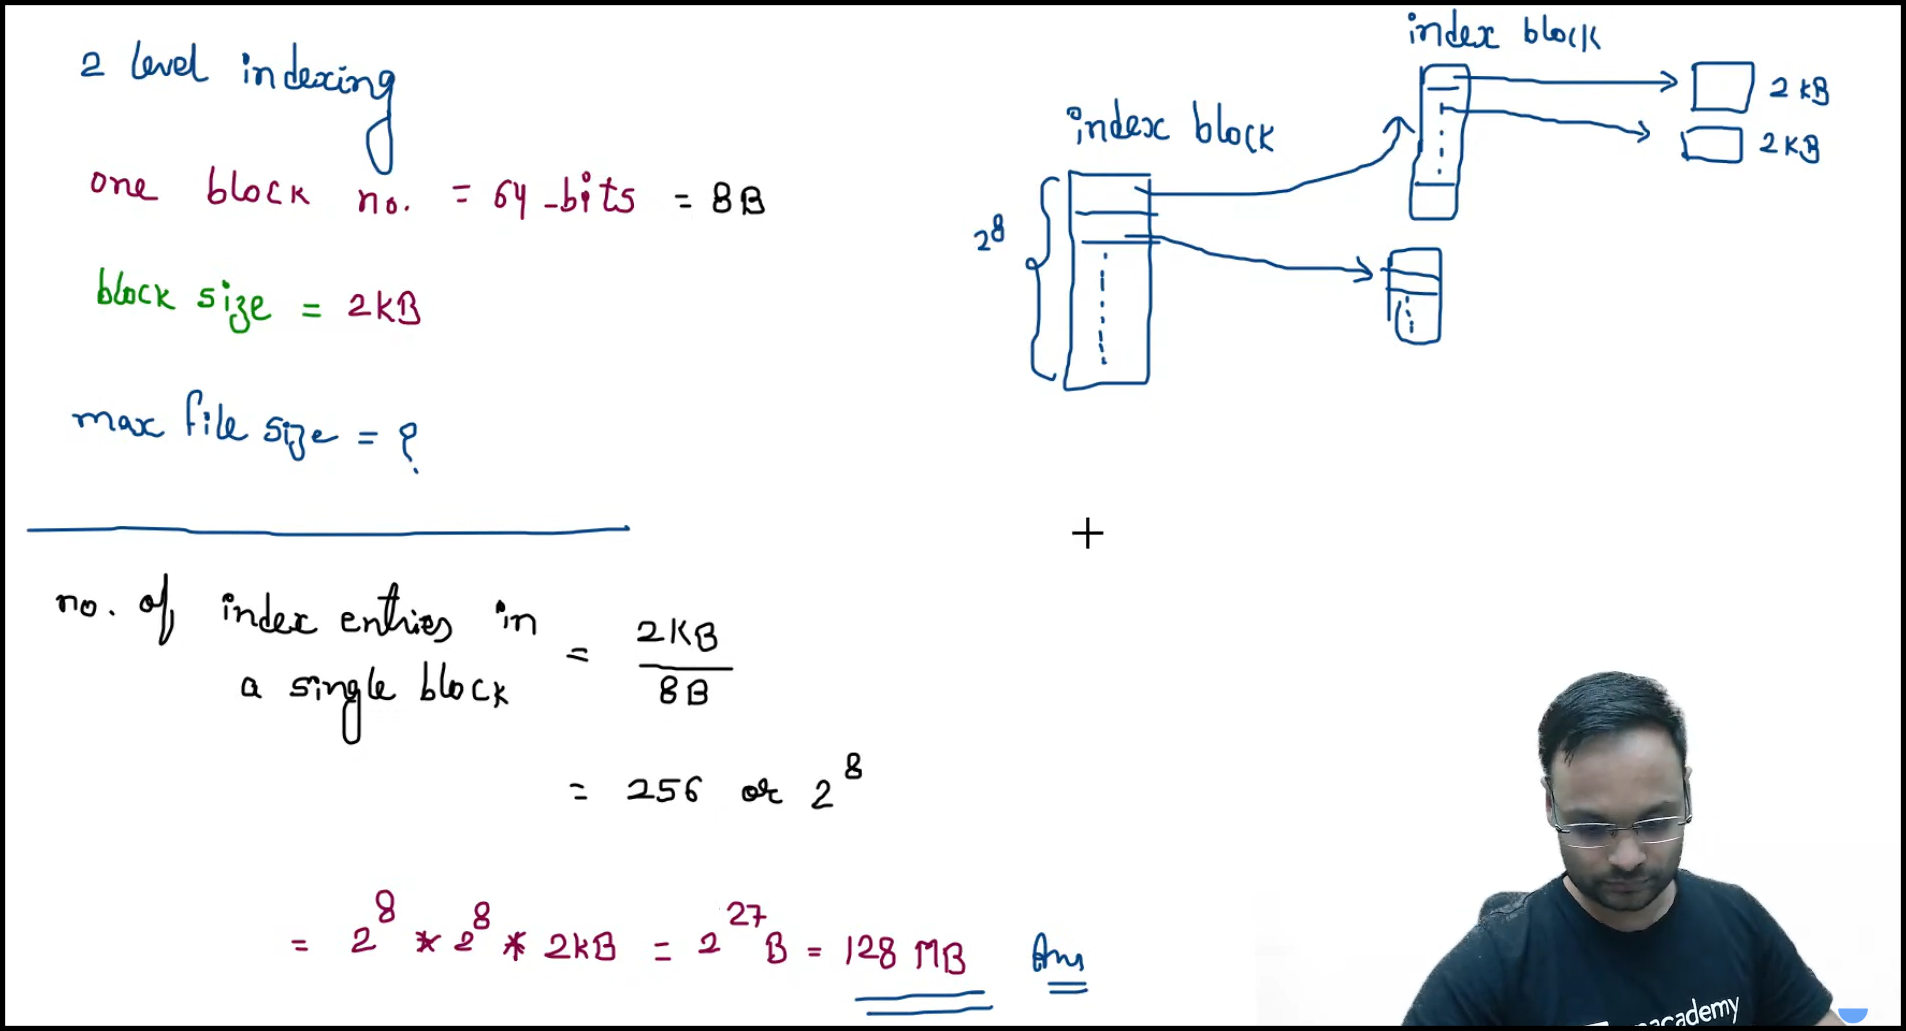 2 level indexing
one block no. = 64-bits = 8B
block size = 2KB
max file size = ?
index block
index block
2^8
2 KB
2 KB
no. of index entries in
a single block
= 2KB
8B
= 256 or 2^8
= 2^8 * 2^8 * 2KB = 2^27 B = 128 MB Ans
academy